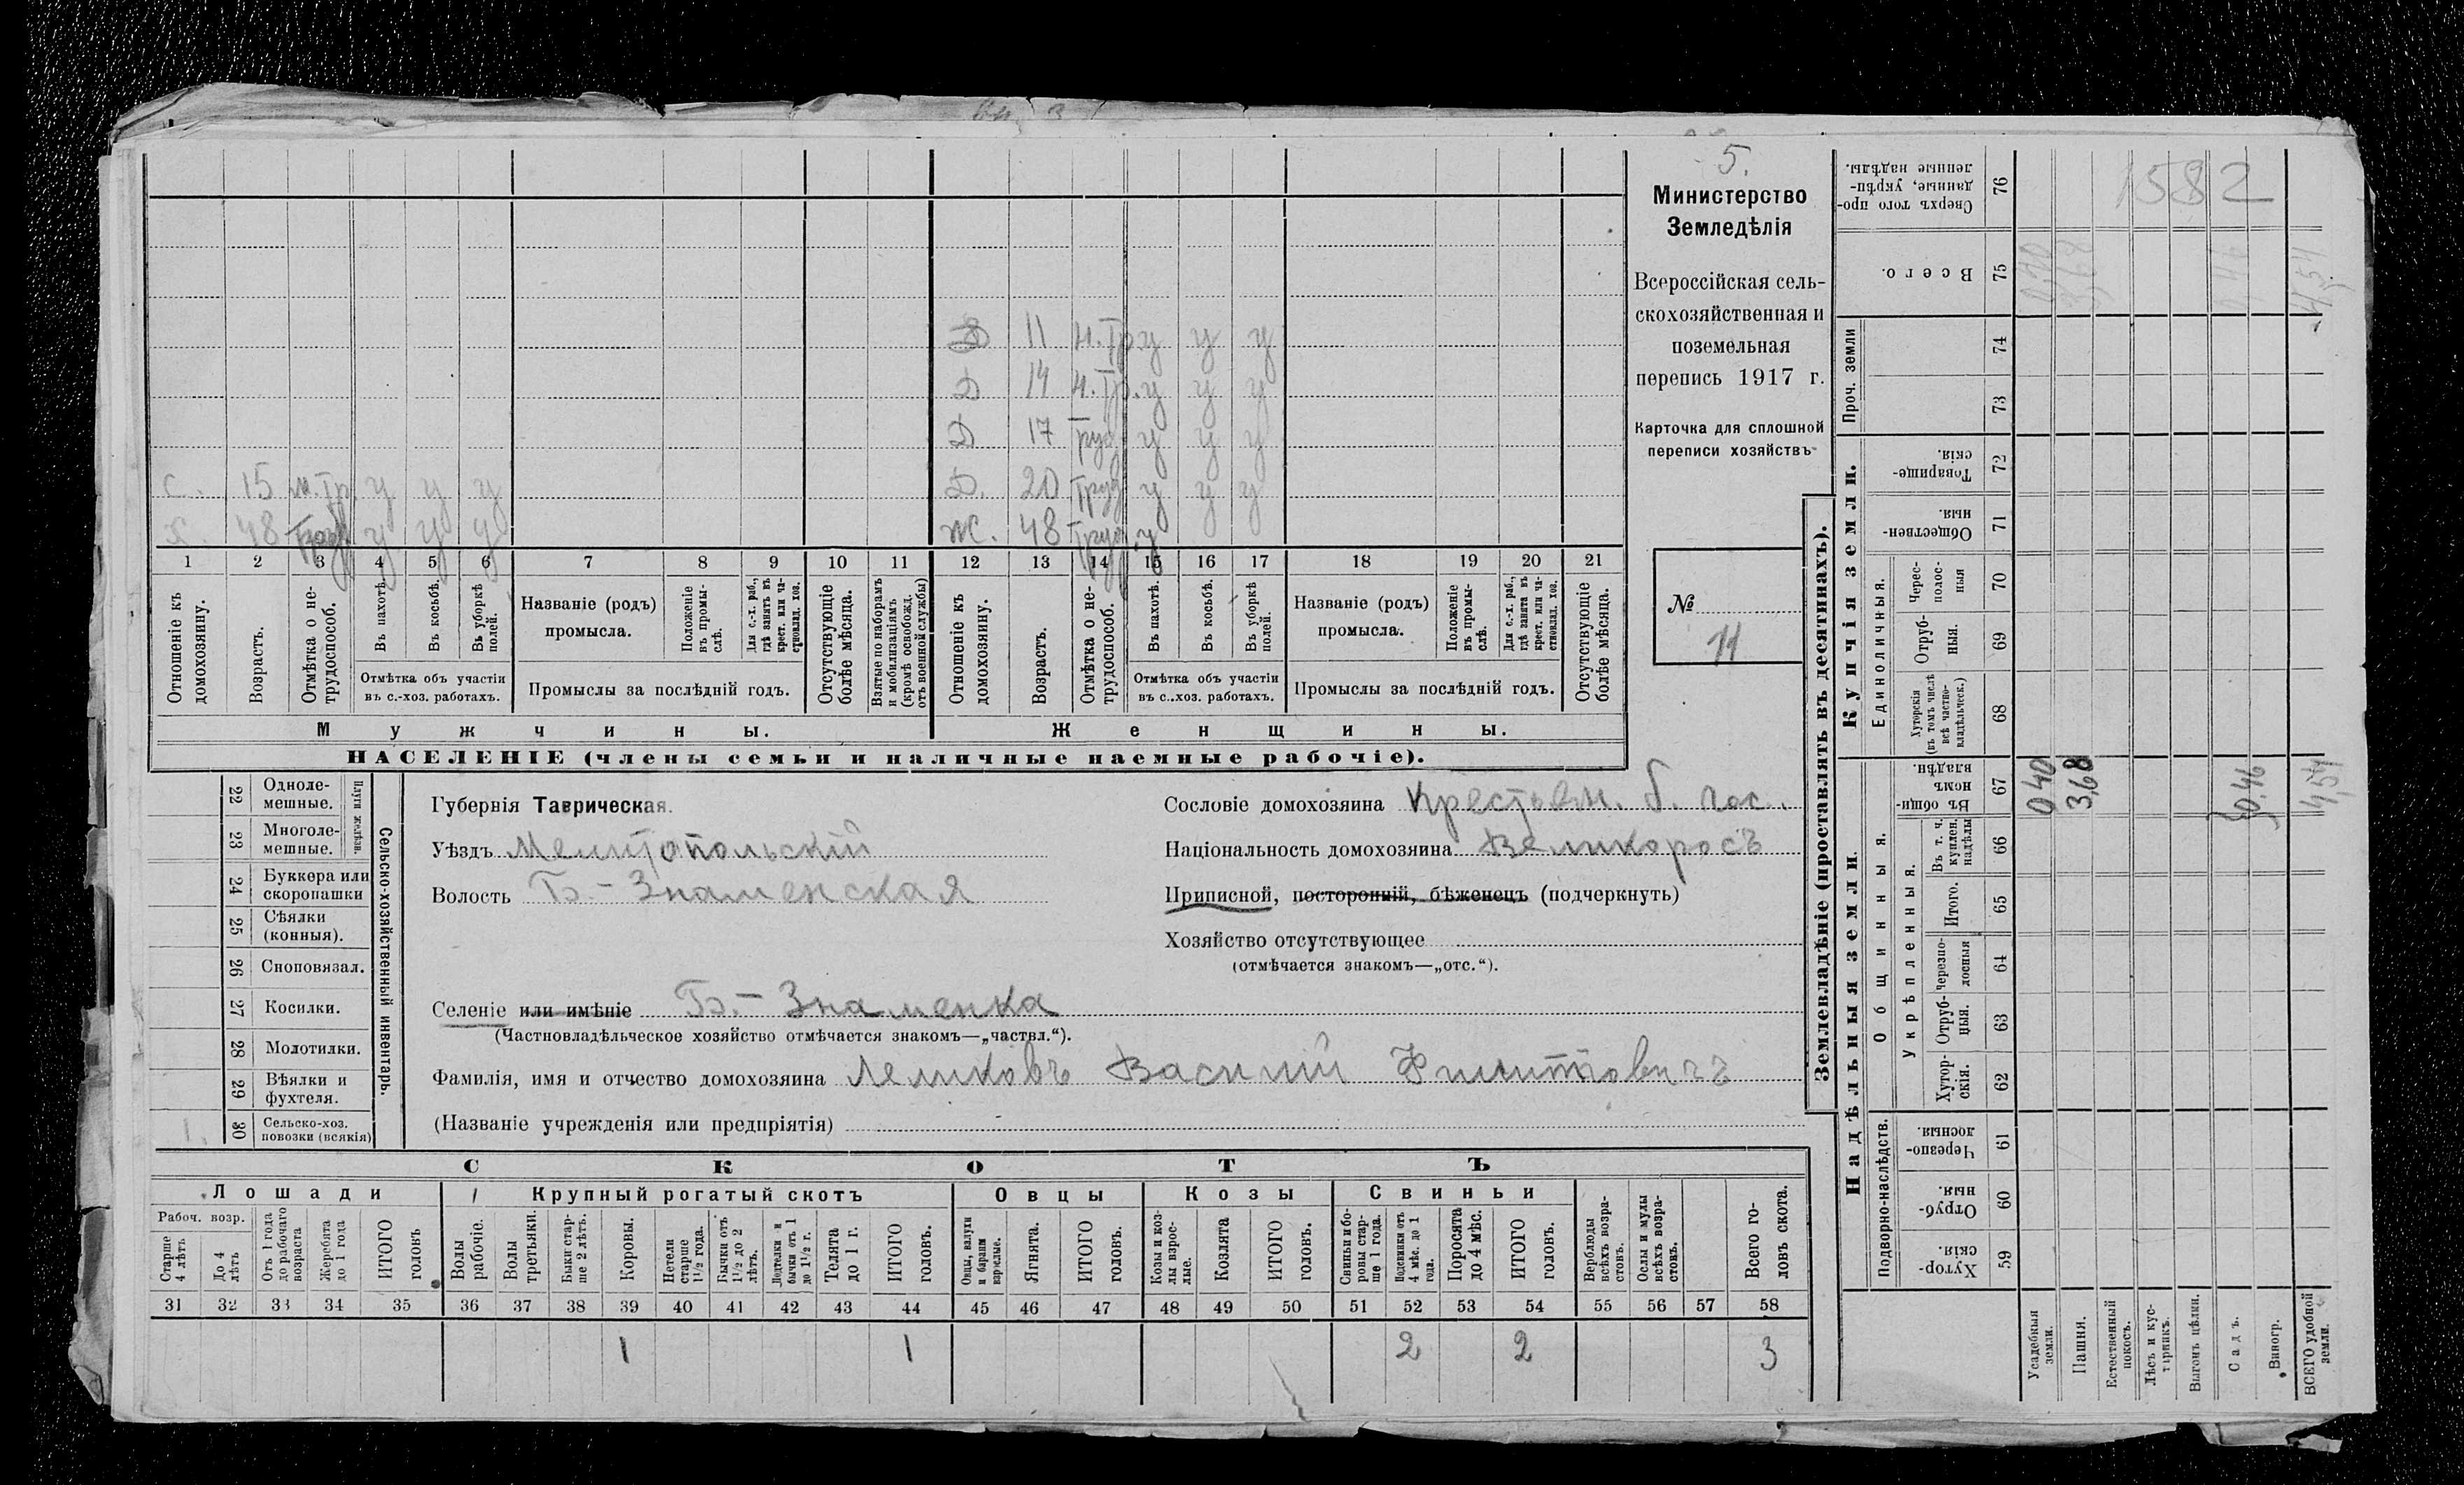 5.
1582
Министерство
Земледѣлія
Всероссійская сель-
скохозяйственная и
поземельная
перепись 1917 г.
Карточка для сплошной
переписи хозяйствъ
№
11
Д 11 н. Тр. у у у
Д 14 н. Тр. у у у
Д 17 Труд. у у у
С. 15 н. Тр. у у у Д. 20 Труд. у у у
Х. 48 Труд. у у у Ж. 48 Труд. у
1 2 3 4 5 6 7 8 9 10 11 12 13 14 15 16 17 18 19 20 21
Отношеніе къ домохозяину.
Возрастъ.
Отмѣтка о не-трудоспособ.
Въ пахотѣ.
Въ косьбѣ.
Въ уборкѣ полей.
Отмѣтка объ участіи
въ с.-хоз. работахъ.
Названіе (родъ)
промысла.
Положеніе въ промы-слѣ.
Для с.-х. раб., гдѣ занятъ въ крест. или ча-стновлад. хоз.
Промыслы за послѣдній годъ.
Отсутствующіе болѣе мѣсяца.
Взятые по наборамъ и мобилизаціямъ (кромѣ освобожд. отъ военной службы)
Отношеніе къ домохозяину.
Возрастъ.
Отмѣтка о не-трудоспособ.
Въ пахотѣ.
Въ косьбѣ.
Въ уборкѣ полей.
Отмѣтка объ участіи
въ с.-хоз. работахъ.
Названіе (родъ)
промысла.
Положеніе въ промы-слѣ.
Для с.-х. раб., гдѣ занята въ крест. или ча-стновлад. хоз.
Промыслы за послѣдній годъ.
Отсутствующіе болѣе мѣсяца.
Мужчины. Женщины.
НАСЕЛЕНІЕ (члены семьи и наличные наемные рабочіе).
Сельско-хозяйственный инвентарь.
Плуги желѣзн.
22 Одноле-мешные.
23 Многоле-мешные.
24 Буккера или скоропашки
25 Сѣялки (конныя).
26 Сноповязал.
27 Косилки.
28 Молотилки.
29 Вѣялки и фухтеля.
1. 30 Сельско-хоз. повозки (всякія)
Губернія Таврическая.
Уѣздъ Мелитопольскій
Волость Б.-Знаменская
Селеніе или имѣніе Б.-Знаменка
(Частновладѣльческое хозяйство отмѣчается знакомъ—„частвл.“).
Фамилія, имя и отчество домохозяина Леликовъ Василій Филитовичъ
(Названіе учрежденія или предпріятія)
Сословіе домохозяина Крестьян. б. гос.
Національность домохозяина Великоросъ
Приписной, посторонній, бѣженецъ (подчеркнуть)
Хозяйство отсутствующее
(отмѣчается знакомъ—„отс.“).
СКОТЪ
Лошади 1 Крупный рогатый скотъ Овцы Козы Свиньи
Рабоч. возр.
Старше 4 лѣтъ
До 4 лѣтъ
Отъ 1 года до рабочаго возраста
Жеребята до 1 года
ИТОГО головъ
Волы рабочіе.
Волы третьяки.
Быки стар-ше 2 лѣтъ.
Коровы.
Нетели старше 1½ года.
Бычки отъ 1½ до 2 лѣтъ.
Подтелки и бычки отъ 1 до 1½ г.
Телята до 1 г.
ИТОГО головъ.
Овцы, валухи и бараны взрослые.
Ягнята.
ИТОГО головъ.
Козы и коз-лы взрос-лые.
Козлята
ИТОГО головъ.
Свиньи и бо-ровы стар-ше 1 года.
Подсвинки отъ 4 мѣс. до 1 года.
Поросята до 4 мѣс.
ИТОГО головъ.
Верблюды всѣхъ возра-стовъ.
Ослы и мулы всѣхъ возра-стовъ.
Всего го-ловъ скота.
31 32 33 34 35 36 37 38 39 40 41 42 43 44 45 46 47 48 49 50 51 52 53 54 55 56 57 58
1 1 2 2 3
Землевладѣніе (проставлять въ десятинахъ).
Надѣльныя земли.
Купчія земли.
Проч. земли
Подворно-наслѣдств.
Общинныя.
Укрѣпленныя.
Единоличныя.
59 Хутор-скія.
60 Отруб-ныя.
61 Черезпо-лосныя.
62 Хутор-скія.
63 Отруб-ныя.
64 Черезпо-лосныя
65 Итого.
66 Въ т. ч. куплен. надѣлы
67 Въ общи-номъ владѣн.
68 Хуторскія (въ томъ числѣ всѣ частно-владѣльческ.)
69 Отруб-ныя.
70 Черес-полос-ныя
71 Обществен-ныя.
72 Товарище-скія.
73
74
75 Всего.
76 Сверхъ того про-данные, укрѣп-ленные надѣлы.
Усадебныя земли. 0,40 0,40
Пашня. 3,68 3,68
Естественный покосъ.
Лѣсъ и кус-тарникъ.
Выгонъ цѣлин.
Садъ. 0,46 0,46
Виногр.
ВСЕГО удобной земли. 4,54 4,54